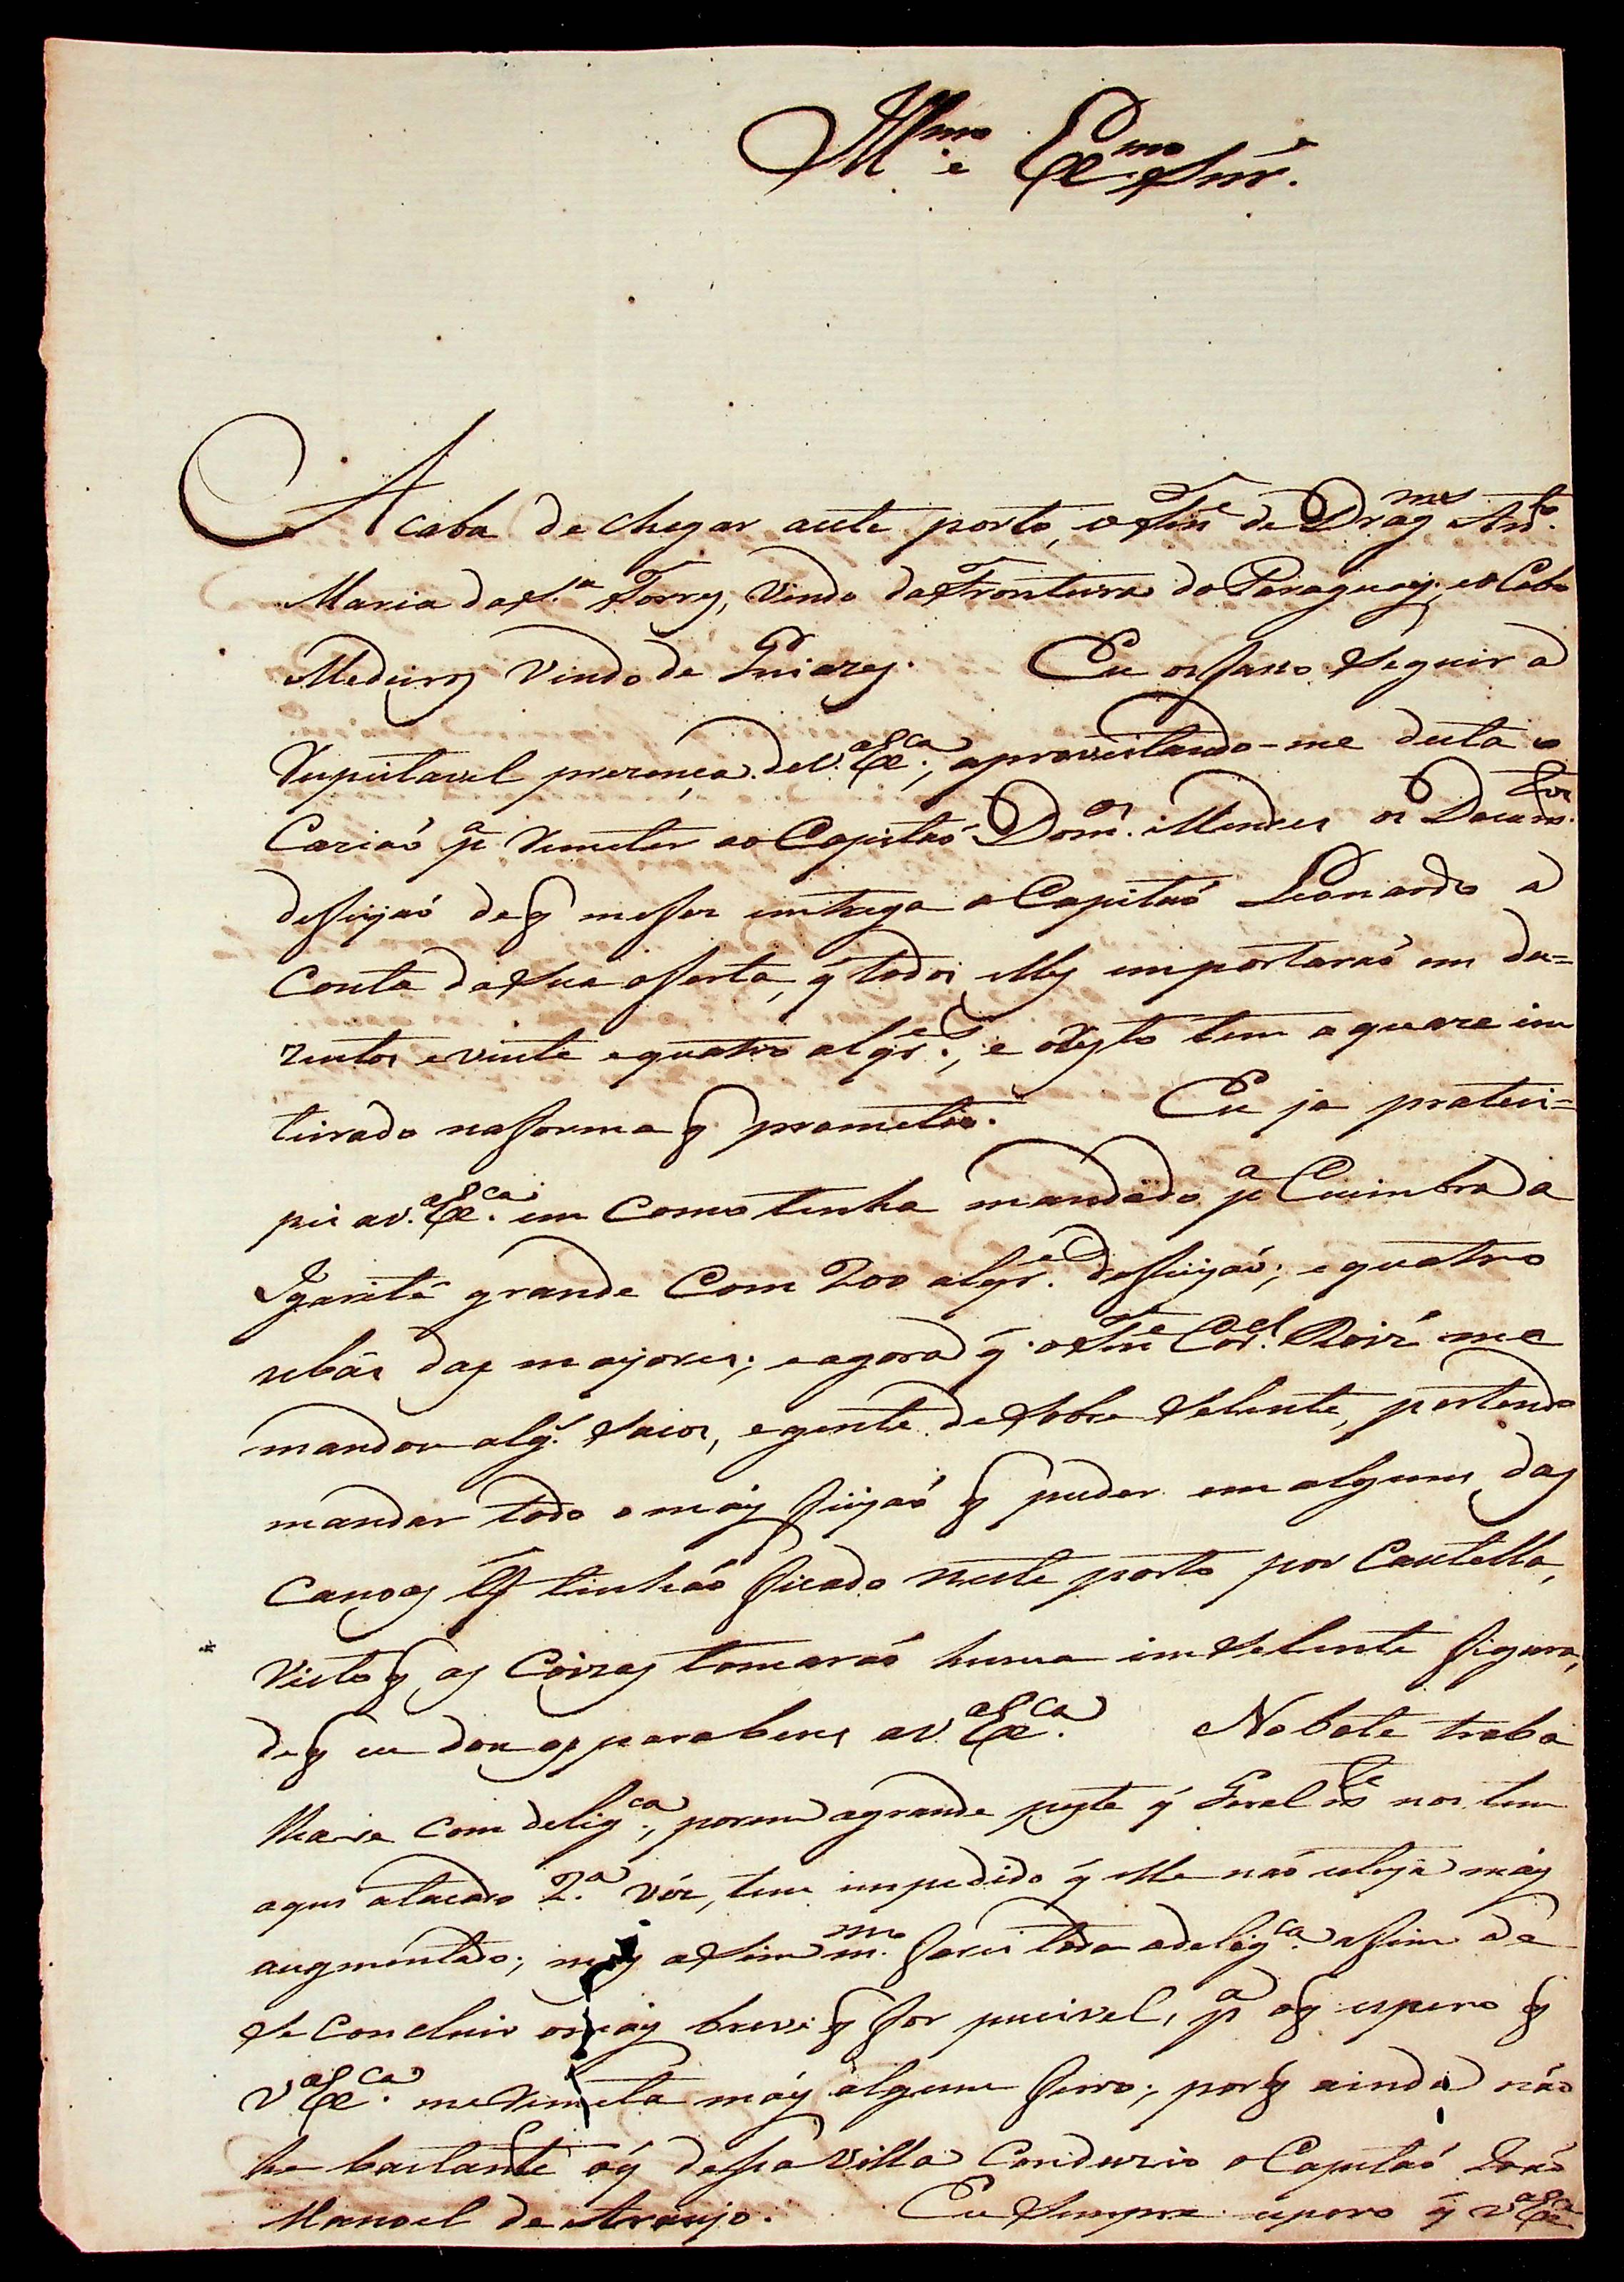 Illmo e Exmo Snr.
Acaba de chegar aeste porto, o Tene de Dragmes Anto
Maria da Sa Torres, vindo da Fronteira do Paraguay; eo Cabo
Medeiros vindo de Goiazes. Eu os faço seguir a
respeitavel prezença de V. Exca., aproveitando-me desta o
Cazião pa remeter ao Capitão Domos. Mendes os Docum.tos
defeijão deq mefez emtrega o Capitão Leonardo a
Conta da sua oferta, q todos elles emportarão em du=
zentos evinte equatro alqrs., e o resto tem aquaze im
teirado naforma q prometeo. Eu ja pratici=
pei aV. Exca. em Como tinha mandado pa Coimbra a
Igarité grande Com 200 alqrs. defeijão; e quatro
ubás das mayores; eagora q o Tene Corel. Roiz me
mandou algs. sacos, egente de sobre selente, pertendo
mandar todo o mais feijão q puder em algumas das
canoas q tinhão ficado neste porto por Cautella,
visto q as Coizas tomarão huma im selente figura,
deq eu dou os parabens aV. Exca. No bote traba
lhase com deligca., porem agrande peste q Geral mte nos tem
aqui atacado 2.a vez, tem impedido q elle não esteja mais
augmentado; mas asim mmo. farei toda adeligca. afim de
se concluir o mais breve q for pucivel, pa oq espero q
V Exca. me remeta mais algum ferro; porq ainda não
he bastante oq dessa villa Conduzio o Capitão João
Manoel de Araujo. Eu sempre espero q V Exca